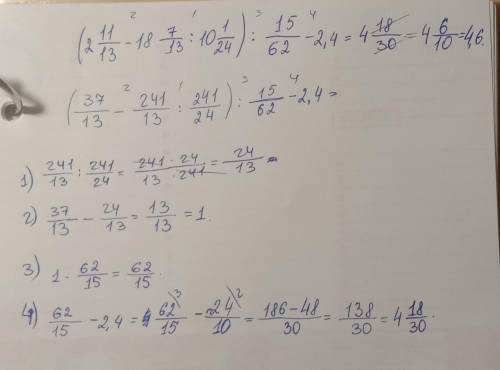 (2 11/13 - 18 7/13 : 10 1/24) : 15/62 - 2,4 = 4 18/30 = 4 6/10 = 4,6.
(37/13 - 241/13 : 241/24) : 15/62 - 2,4 =
1) 241/13 : 241/24 = 241 · 24/13 · 241 = 24/13
2) 37/13 - 24/13 = 13/13 = 1.
3) 1 · 62/15 = 62/15.
4) 62/15 - 2,4 = 62/15 - 24/10 = 186-48/30 = 138/30 = 4 18/30.